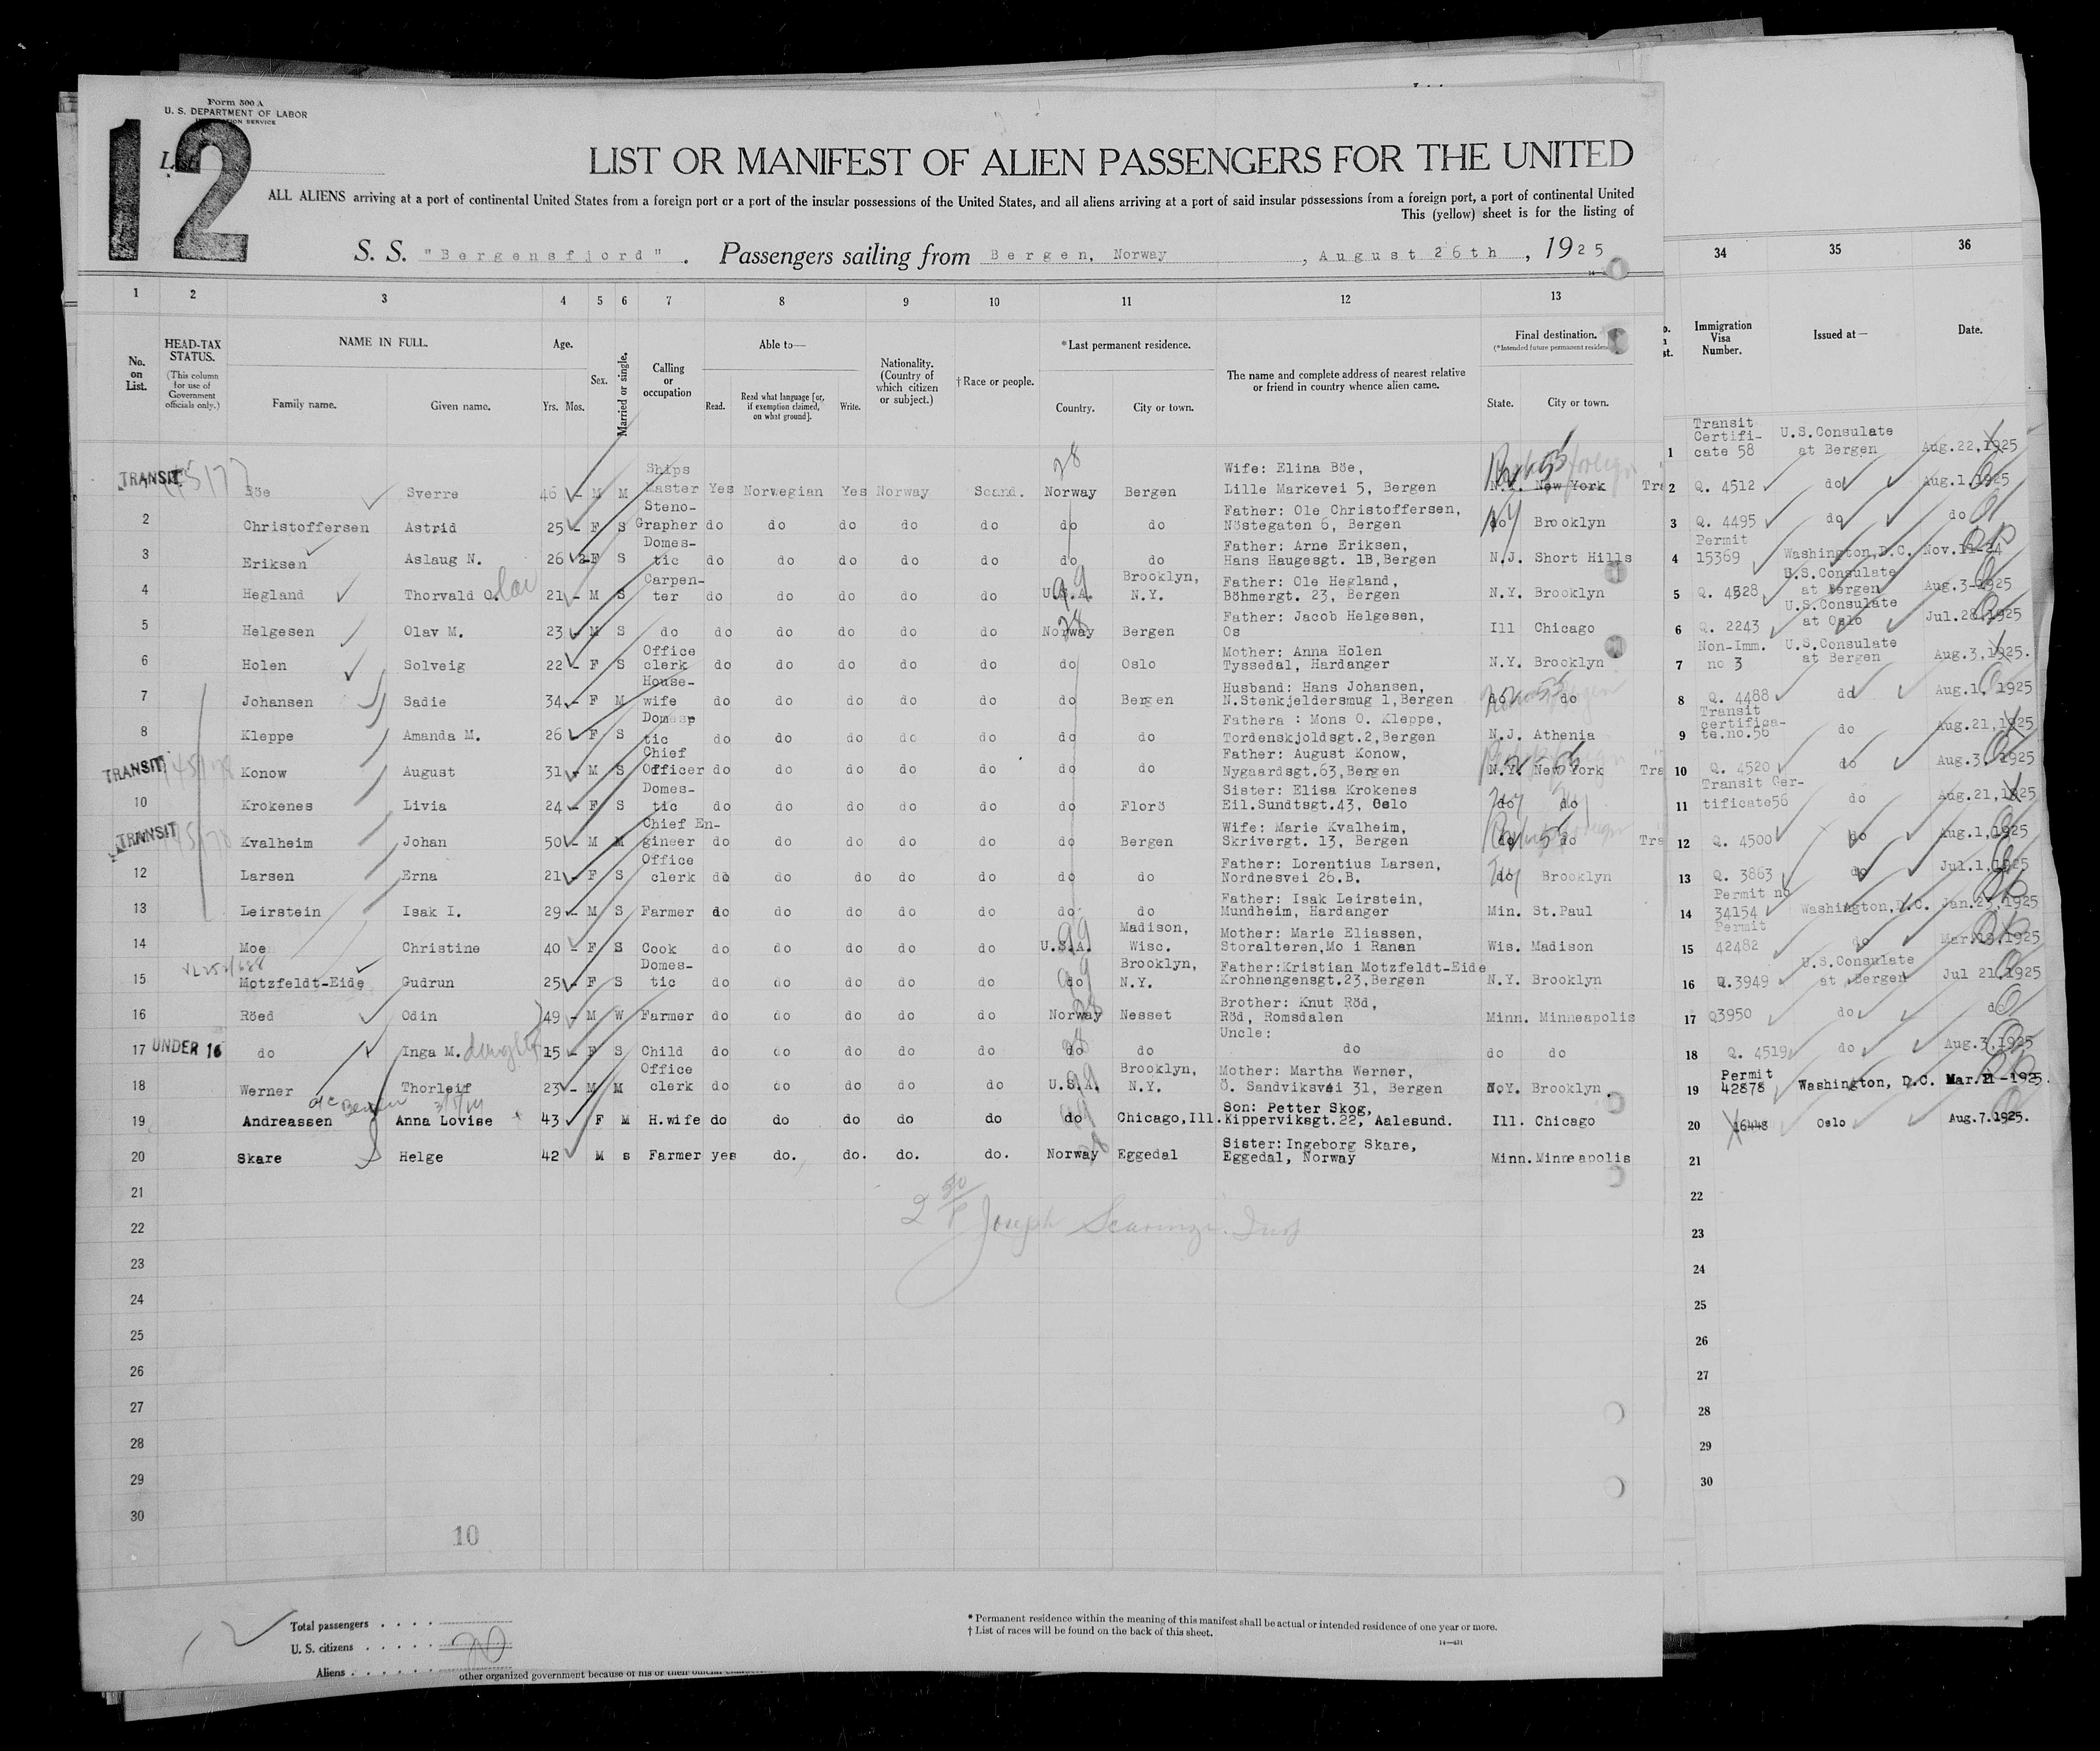 Form 500 A
U. S. DEPARTMENT OF LABOR
12
LIST OR MANIFEST OF ALIEN PASSENGERS FOR THE UNITED
ALL ALIENS arriving at a port of continental United States from a foreign port or a port of the insular possessions of the United States, and all aliens arriving at a port of said insular possessions from a foreign port, a port of continental United
This (yellow) sheet is for the listing of
S. S. "Bergensfjord". Passengers sailing from Bergen, Norway, August 26th, 1925
1 2 3 4 5 6 7 8 9 10 11 12 13 34 35 36
No. on List. HEAD-TAX STATUS. (This column for use of Government officials only.) NAME IN FULL. Family name. Given name. Age. Yrs. Mos. Sex. Married or single. Calling or occupation Able to— Read. Read what language [or, if exemption claimed, on what ground]. Write. Nationality. (Country of which citizen or subject.) † Race or people. *Last permanent residence. Country. City or town. The name and complete address of nearest relative or friend in country whence alien came. Final destination. State. City or town. Immigration Visa Number. Issued at— Date.
TRANSIT Böe Sverre 46 - M M Ships Master Yes Norwegian Yes Norway Scand. Norway Bergen Wife: Elina Böe, Lille Markevei 5, Bergen N.Y. New York
2 Christoffersen Astrid 25 - F S Steno-Grapher do do do do do do do Father: Ole Christoffersen, Nöstegaten 6, Bergen do Brooklyn
3 Eriksen Aslaug N. 26 F S Domes-tic do do do do do do do Father: Arne Eriksen, Hans Haugesgt. 1B, Bergen N.J. Short Hills
4 Hegland Thorvald O. 21 - M S Carpen-ter do do do do do U.S.A. Brooklyn, N.Y. Father: Ole Hegland, Böhmergt. 23, Bergen N.Y. Brooklyn
5 Helgesen Olav M. 23 - M S do do do do do do Norway Bergen Father: Jacob Helgesen, Os Ill Chicago
6 Holen Solveig 22 - F S Office clerk do do do do do do Oslo Mother: Anna Holen Tyssedal, Hardanger N.Y. Brooklyn
7 Johansen Sadie 34 - F M House-wife do do do do do do Bergen Husband: Hans Johansen, N.Stenkjeldersmug 1, Bergen do do
8 Kleppe Amanda M. 26 - F S Domes tic do do do do do do do Fathera : Mons O. Kleppe, Tordenskjoldsgt.2, Bergen N.J. Athenia
TRANSIT Konow August 31 - M S Chief Officer do do do do do do do Father: August Konow, Nygaardsgt.63, Bergen N.Y. New York
10 Krokenes Livia 24 - F S Domes-tic do do do do do do Florö Sister: Elisa Krokenes Eil.Sundtsgt.43, Oslo do do
TRANSIT Kvalheim Johan 50 - M M Chief En-gineer do do do do do do Bergen Wife: Marie Kvalheim, Skrivergt. 13, Bergen do do
12 Larsen Erna 21 - F S Office clerk do do do do do do do Father: Lorentius Larsen, Nordnesvei 26.B. do Brooklyn
13 Leirstein Isak I. 29 - M S Farmer do do do do do do do Father: Isak Leirstein, Mundheim, Hardanger Min. St.Paul
14 Moe Christine 40 - F S Cook do do do do do U.S.A. Madison, Wisc. Mother: Marie Eliassen, Storalteren, Mo i Ranen Wis. Madison
15 Motzfeldt-Eide Gudrun 25 - F S Domes-tic do do do do do do Brooklyn, N.Y. Father:Kristian Motzfeldt-Eide Krohnengensgt.23, Bergen N.Y. Brooklyn
16 Röed Odin 49 - M W Farmer do do do do do Norway Nesset Brother: Knut Röd, Röd, Romsdalen Minn. Minneapolis
17 UNDER 16 do Inga M. daughter 15 - F S Child do do do do do do do Uncle: do do do
18 Werner Thorleif 23 - M M Office clerk do do do do do U.S.A. Brooklyn, N.Y. Mother: Martha Werner, Ö. Sandviksvei 31, Bergen N.Y. Brooklyn.
19 Andreassen Anna Lovise 43 F M H.wife do do do do do do Chicago, Ill. Son: Petter Skog, Kipperviksgt.22, Aalesund. Ill. Chicago
20 Skare Helge 42 M s Farmer yes do. do. do. do. Norway Eggedal Sister: Ingeborg Skare, Eggedal, Norway Minn. Minneapolis
21
22
23
24
25
26
27
28
29
30
10
1 Transit Certifi-cate 58 U.S.Consulate at Bergen Aug.22,1925
2 Q. 4512 do Aug.1,1925
3 Q. 4495 do do
4 Permit 15369 Washington, D.C. Nov.11-24
5 Q. 4528 U.S.Consulate at Bergen Aug.3-1925
6 Q. 2243 U.S.Consulate at Oslo Jul.28,1925
7 Non-Imm. no 3 U.S.Consulate at Bergen Aug.3,1925.
8 Q. 4488 do Aug.1, 1925
9 Transit certifica-te.no.56 do Aug.21,1925
10 Q. 4520 do Aug.3,1925
11 Transit Cer-tificate56 do Aug.21,1925
12 Q. 4500 do Aug.1,1925
13 Q. 3863 do Jul.1,1925
14 Permit no 34154 Washington, D.C. Jan.23,1925
15 Permit 42482 do Mar.19.1925
16 Q.3949 U.S.Consulate at Bergen Jul 21.1925
17 Q3950 do do
18 Q. 4519 do Aug.3,1925
19 Permit 42878 Washington, D.C. Mar. 21-1925.
20 16448 Oslo Aug.7.1925.
21
22
23
24
25
26
27
28
29
30
Total passengers
U. S. citizens
Aliens 20
* Permanent residence within the meaning of this manifest shall be actual or intended residence of one year or more.
† List of races will be found on the back of this sheet.